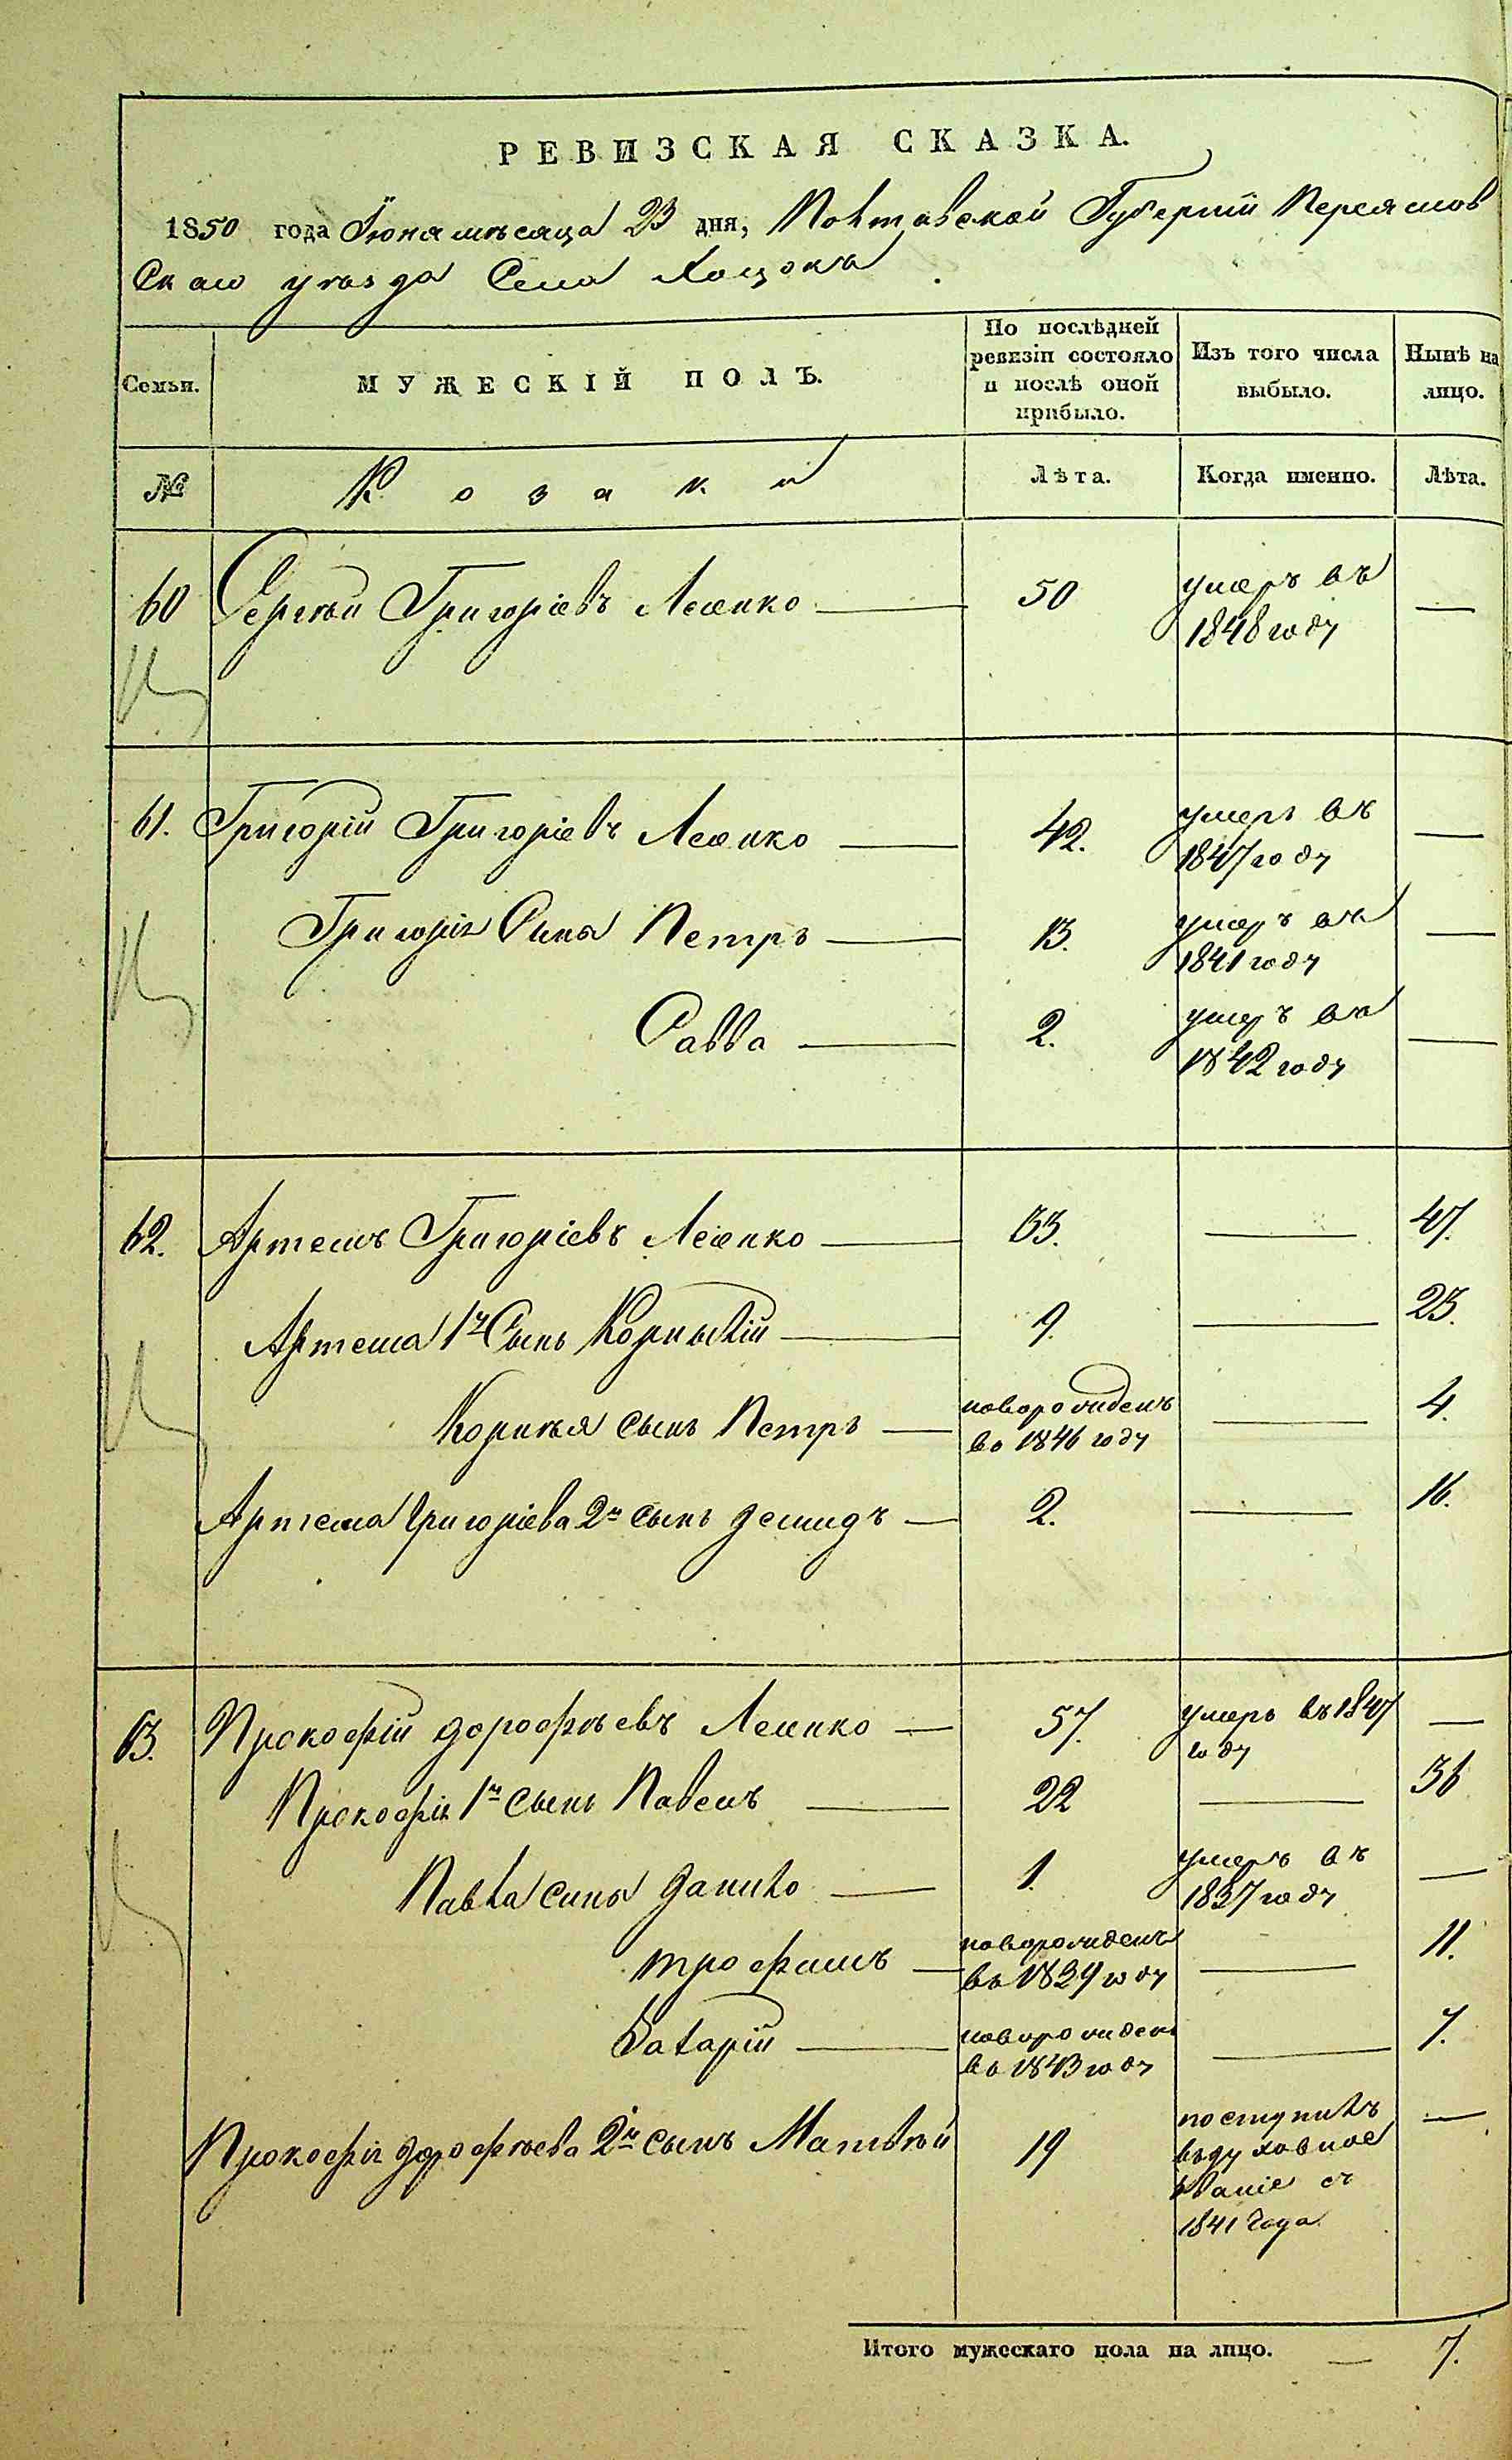 РЕВИЗСКАЯ СКАЗКА.
1850 года Июня мѣсяца 23 дня, Полтавской Губерніи Переяслов
скаго уѣзда Села Хоцокъ
Семьи. МУЖЕСКІЙ ПОЛЪ. По послѣдней ревизіи состояло и послѣ оной прибыло. Изъ того числа выбыло. Нынѣ на лицо.
№ Козаки Лѣта. Когда именно. Лѣта.
60 Сергѣй Григоріевъ 50 умеръ въ 1848 году —
61. Григорій Григоріевъ 42. умеръ въ 1847 году —
Григорія Сынъ Петръ 13. умеръ въ 1841 году —
Савва 2. умеръ въ 1842 году —
62. Артемъ Григоріевъ 33. — 47.
Артема 1й Сынъ Корнилій 9. — 23.
Корнея сынъ Петръ новорожденъ во 1846 году — 4.
Артема Григоріева 2й сынъ Демидъ 2. — 16.
63. Прокофій Дорофѣевъ 57. умеръ въ 1847 году —
Прокофія 1й сынъ Павелъ 22 — 36
Павла сынъ Данило 1. умеръ въ 1837 году —
Трофимъ новорожденъ въ 1839 году — 11.
Захарій новорожден въ 1843 году — 7.
Прокофія Дорофѣева 2й сынъ Матвѣй 19 поступилъ въ духовное званіе съ 1841 года —
Итого мужескаго пола на лицо. — 7.